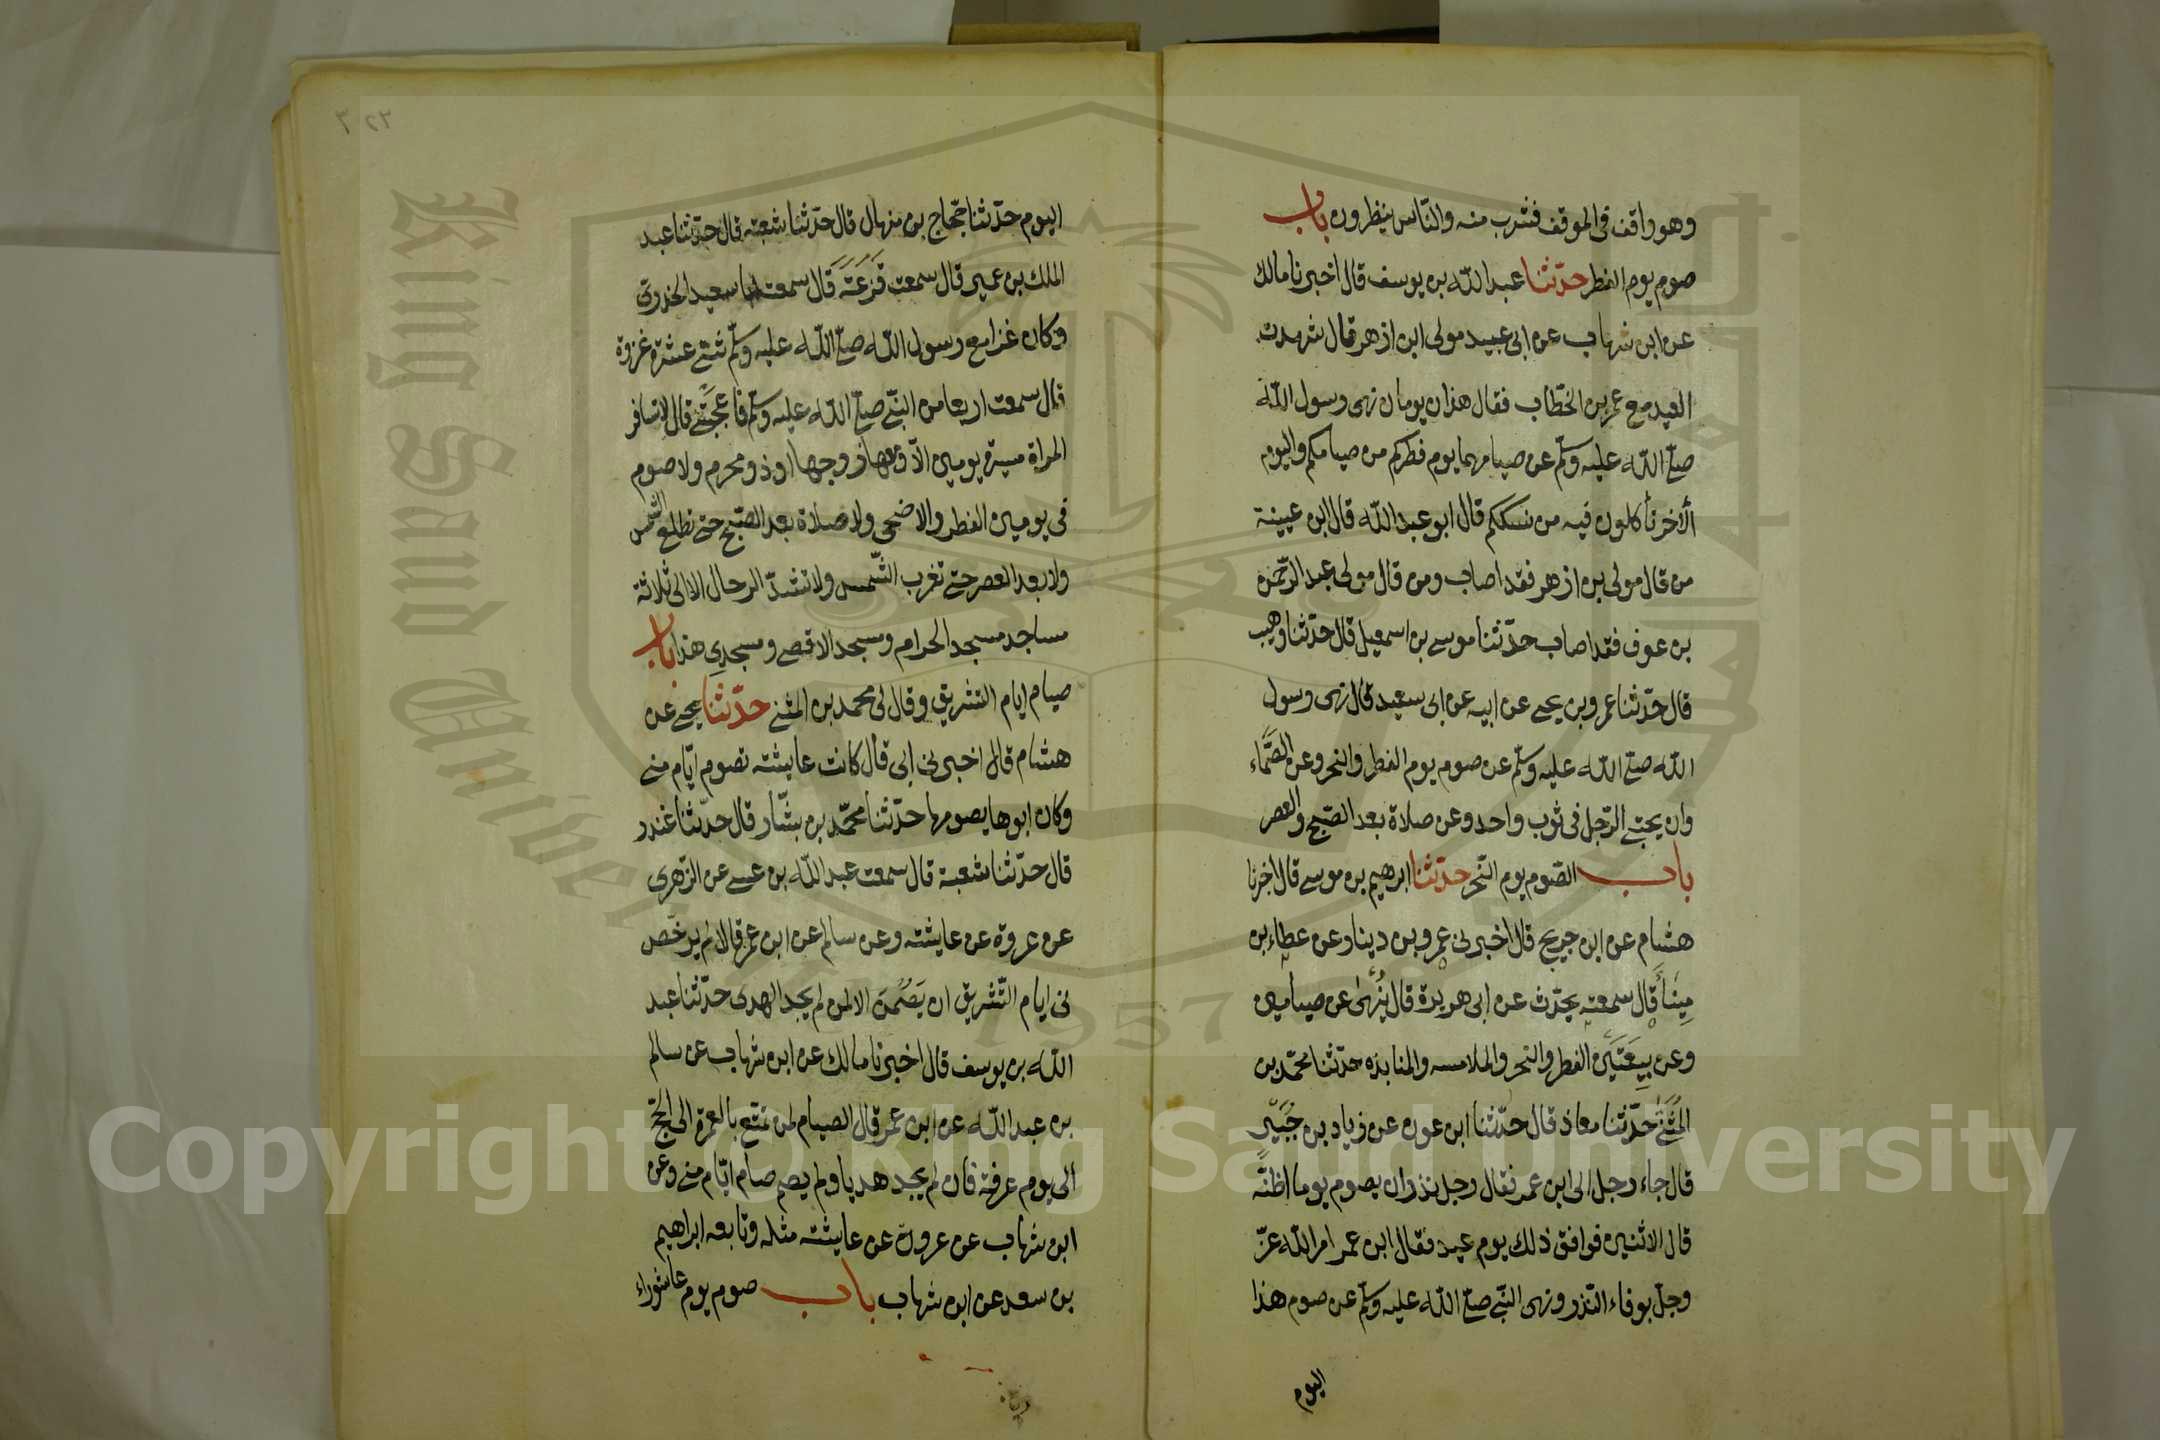 وهو واقف فى الموقف فشرب منه والنّاس ينظرون باب
صوم يوم الفطر حدّثنا عبد اللّه بن يوسف قال اخبرنا مالك
عن ابن شهاب عن ابى عبيد مولى ابن ازهر قال شهدت
العيد مع عمر بن الخطّاب فقال هذان يومان نهى رسول اللّه
صلّى اللّه عليه وسلّم عن صيامهما يوم فطركم من صيامكم واليوم
الآخر تأكلون فيه من نسككم قال ابو عبد اللّه قال ابن عيينة
من قال مولى بن ازهر فقد اصاب ومن قال مولى عبد الرّحمن
بن عوف فقد اصاب حدّثنا موسى بن اسمعيل قال حدّثنا وهيب
قال حدّثنا عمرو بن يحيى عن ابيه عن ابى سعيد قال نهى رسول
اللّه صلّى اللّه عليه وسلّم عن صوم يوم الفطر والنحر وعن الصَّمّاء
وان يحتبى الرّجل فى ثوب واحد وعن صلاة بعد الصّبح والعصر
باب الصّوم يوم النّحر حدّثنا ابرهيم بن موسى قال اخبرنا
هشام عن ابن جريج قال اخبرنى عمرو بن دينار عن عطاء بن
مِينَأَ قال سمعته يحدّث عن ابى هريرة قال يُنْهَى عن صيامين
وعن بيعَتَيْن الفطر والنحر والملامسه والمنابذه حدّثنا محمّد بن
المُثَنَّى حدّثنا معاذ قال حدّثنا ابن عون عن زياد بن جُبَيْر
قال جاء رجل الى ابن عمر فقال رجل نذر ان يصوم يوما اظنّه
قال الاثنين فوافق ذلك يوم عيد فقال ابن عمر امر اللّه عزّ
وجلّ بوفاء النّذر ونهى النّبى صلّى اللّه عليه وسلّم عن صوم هذا
اليوم
٣ ٢٣
اليوم حدّثنا حجّاج بن منهال قال حدّثنا شعبة قال حدّثنا عبد
الملك بن عمير قال سمعت قَزَعَةَ قال سمعت ابا سعيد الخدرى
وكان غزا مع رسول اللّه صلّى اللّه عليه وسلّم ثنتى عشرة غزوة
قال سمعت اربعا من النبّى صلّى اللّه عليه وسلّم فاعجبْننى قال لا تسافر
المراة مسيرة يومين الاّ ومعها زوجها او ذو محرم ولا صوم
فى يومين الفطر والاضحى ولا صلاة بعد الصّبح حتى تطلع الشّمس
ولا بعد العصر حتى تغرب الشّمس ولا تشدّ الرحال الا الى ثلاثة
مساجد مسجد الحرام ومسجد الاقصى ومسجدى هذا باب
صيام ايام التشريق وقال لى محمد بن المثنى حدّثنا يحيى عن
هشام قال اخبرنى ابى قال كانت عايشة تصوم ايّام منى
وكان ابوها يصومها حدّثنا محمّد بن بشّار قال حدّثنا غندر
قال حدّثنا شعبة قال سمعت عبد اللّه بن عيسى عن الزّهرى
عن عروة عن عايشة وعن سالم عن ابن عمر قالا لم يرخّص
فى ايام التّشريق ان يَصُمْنَ الا لمن لم يجد الهدى حدّثنا عبد
اللّه بن يوسف قال اخبرنا مالك عن ابن شهاب عن سالم
بن عبد اللّه عن ابن عمر قال الصيام لمن تمتع بالعمرة الى الحجّ
الى يوم عرفة فان لم يجد هديا ولم يصم صام ايّام منى وعن
ابن شهاب عن عروة عن عايشة مثله وتابعه ابراهيم
بن سعد عن ابن شهاب باب صوم يوم عاشوراء
King Saud University
1957
Copyright © King Saud University